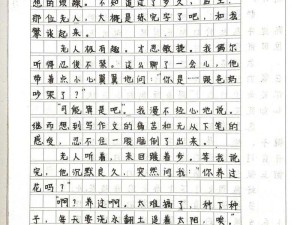 慢慢地，不知道过了多久，台上
那位无人，大概是练完字了吧，和我
聊谈起来。
无人极有趣，才思敏捷。我偶尔
听得忍俊不禁，这么聊了一会儿，他
带着点小心翼翼地问："你是一眼爸妈
吵架了？"
"可能算是吧"。我漫不经心地说。
继而想到写作文的痛苦和无从下笔的
感受，忍不住一股脑倒了出来。
无人听着，来回踱着步，等我说
完，他沉默良久，突然问："你养过
花吗？"
"啊？养过啊，太难搞了，种了种
子，每天要浇水翻土追着太阳，唉，